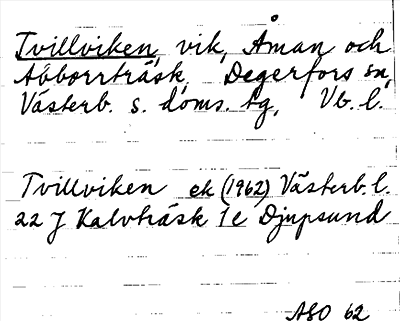 Tvillviken, vik, Åman och
Abborrträsk, Degerfors sn,
Västerb. s. doms. tg, Vb. l.
Tvillviken ek (1962) Västerb. l.
22 J Kalvträsk 1e Djupsund
ASO 62